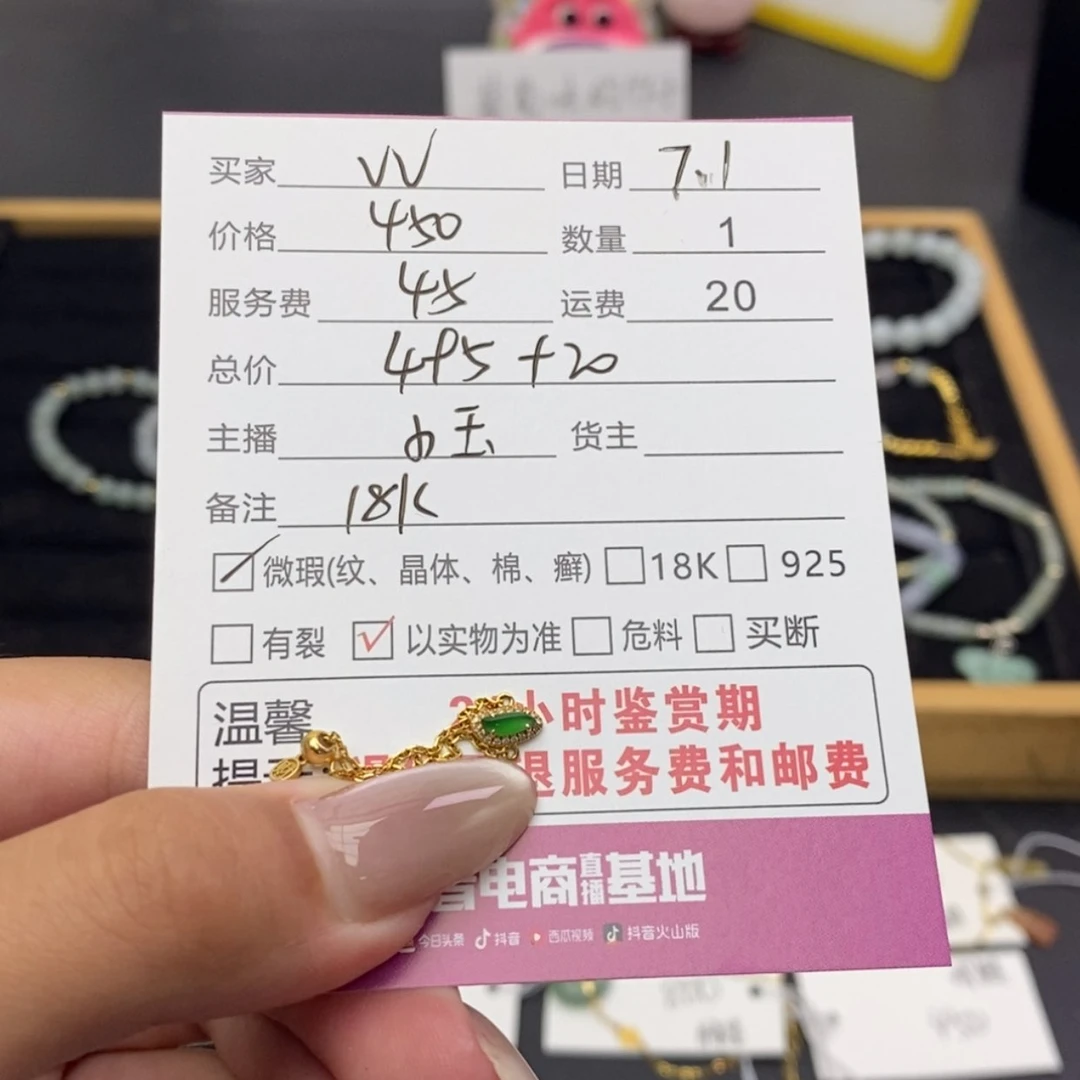 买家 VV 日期 7.1
价格 450 数量 1
服务费 45 运费 20
总价 495 + 20
主播 小玉 货主
备注 18K
微瑕(纹、晶体、棉、癣) 18K 925
有裂 以实物为准 危料 买断
温馨 小时鉴赏期
提 退服务费和邮费
电商直播基地
今日头条 抖音 西瓜视频 抖音火山版